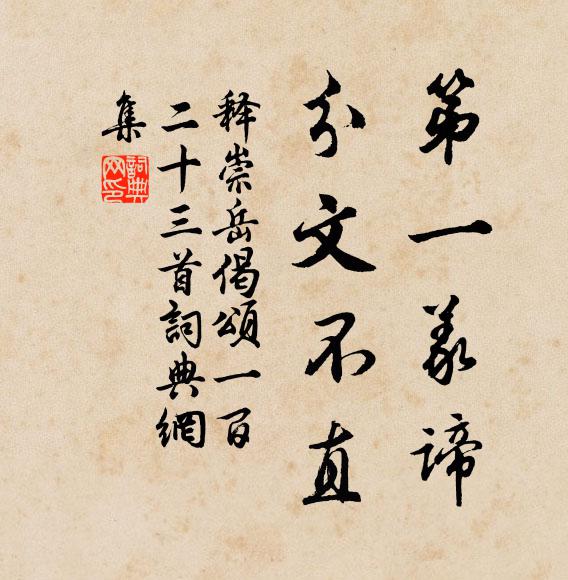 第一義諦
分文不直
釋崇岳偈頌一百
二十三首詞典網
集
詞典网印